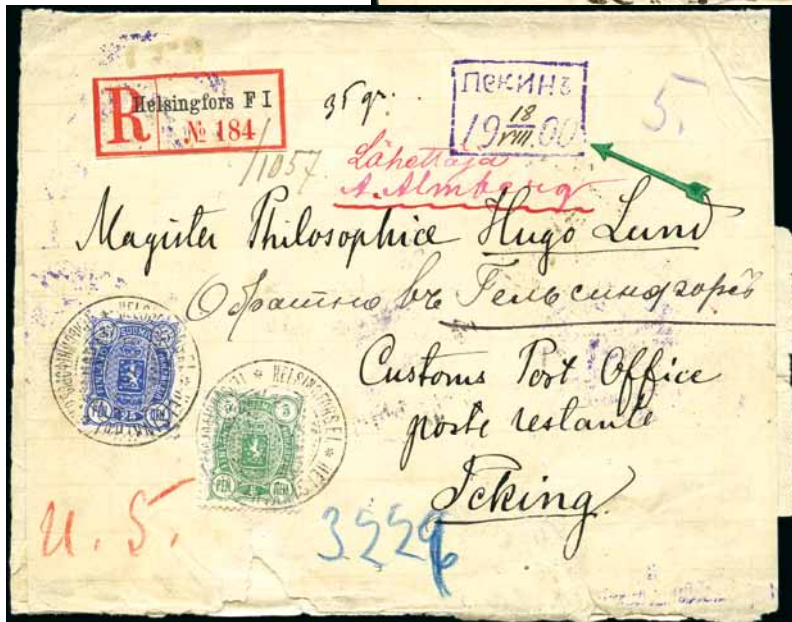 R Helsingfors F I
№ 184
35 gr.
Пекинъ
18
19 VIII. 00
5.
1057
Lähettäjä
A. Almberg
Magister Philosophice Hugo Lund
Обратно въ Гельсингфорсъ
Customs Post Office
poste restante
Peking.
HELSINGFORS
PEN ПЕН
5 5
HELSINGFORS F I
PEN ПЕН
И. 5.
3229